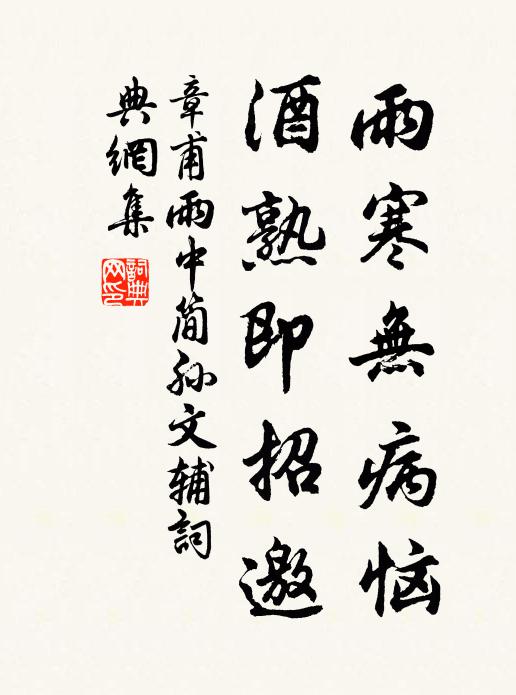 雨寒無病恼
酒熟即招邀
章甫雨中简孙文辅詞
典網集
詞典网印